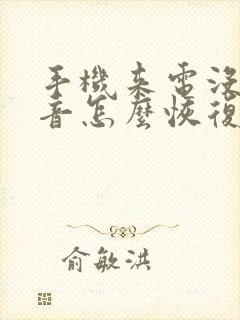 手機來電沒
音怎麼恢復
俞敏洪